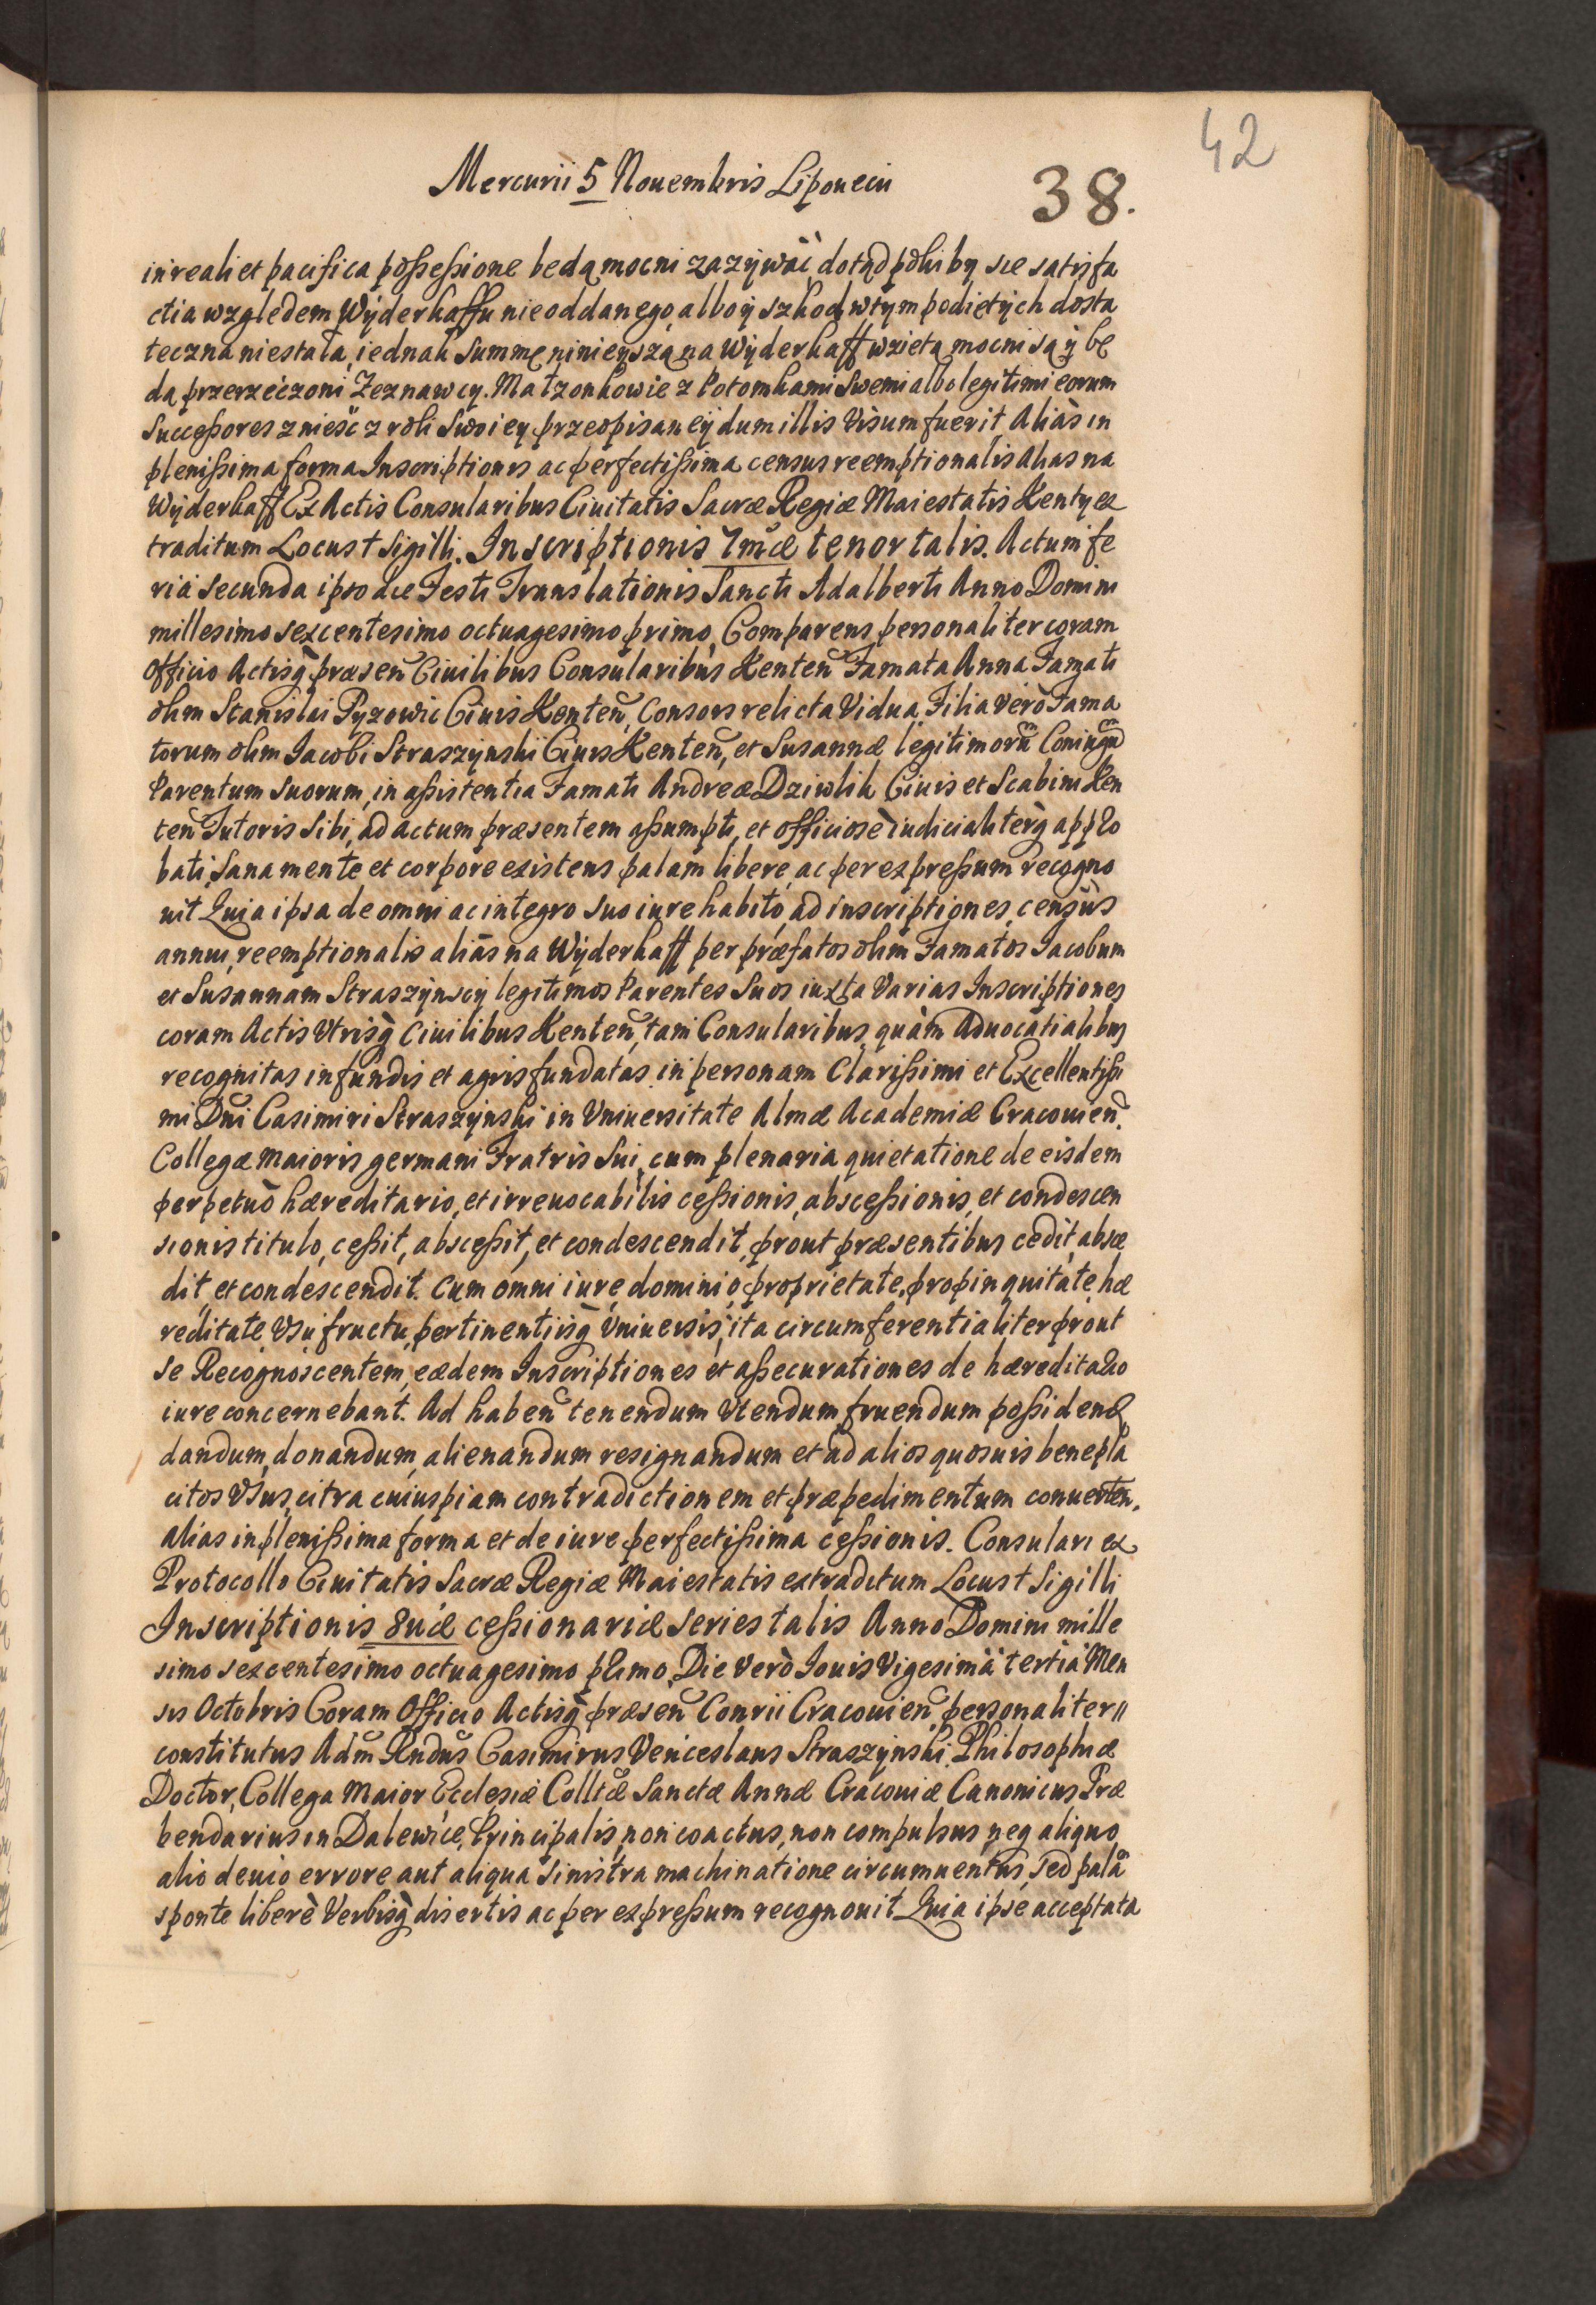 42
Mercurii 5 Nouembris Lipouecii
38.
in reali et pacifica poßeßione będą mocni zazÿwac dotąd pokiby sie satisfa
ctia względem Wÿderkaffu nie oddanego, albo ÿ szkod wtÿm podietÿch dosta
teczna niestała, iednak Summę ninieyszą na Wÿderkaff wzietą mocni są ÿ bę
dą przerzeczoni Zeznawcy. Małzonkowie z Potomkami Swemi albo legitimi eorum
Succeßores znieść z roli Swoiey przeopisaneÿ dum illis Visum fuerit Aliàs in
plenißima forma Inscriptionis ac perfectißima census reemptionalis Alias na
Wÿderkaff Ex Actis Consularibus Ciuitatis Sacræ Regiæ Maiestatis Kenty ex
traditum Locus † Sigilli. Inscriptionis 7mæ tenor talis. Actum fe
ria secunda ipso die Festi Translationis Sancti Adalberti Anno Domini
millesimo sexcentesimo octuagesimo primo, Comparens personaliter coram
Officio Actisq̀ præsen̄ Ciuilibus Consularibus Kenten̄ Famata Anna Famati
olim Stanislai Pyzowic Ciuis Kenten̄, Consors relicta Vidua, Filia Verò Fama
torum olim Iacobi Straszÿnski Ciuis Kenten̄, et Susannæ legitimorū Coniugū
Parentum Suorum, in aßistentia Famati Andreæ Dziwlik Ciuis et Scabini Ken
ten̄ Tutoris Sibi, ad actum præsentem aßumpti, et officiosè iudicialiterq̀ appro
bati, Sana mente et corpore existens palam libere, ac per expreßum recogno
uit Quia ipsa de omni ac integro suo iure habito, ad inscriptiones, censùs
annui, reemptionalis aliàs na Wÿderkaff per præfatos olim Famatos Iacobum
et Susannam Straszÿnscÿ legitimos Parentes Suos iuxta Varias Inscriptiones
coram Actis Vtrisq̀ Ciuilibus Kenten̄, tam Consularibus, quàm Aduocatialibus
recognitas in fundis et agris fundatas in personam Clarißimi et Excellentißi
mi Dn̄i Casimiri Straszÿnski in Vniuersitate Almæ Academiæ Cracouien̄.
Collegæ maioris germani Fratris Sui, cum plenaria quietatione de eisdem
perpetuò hæreditario, et irreuocabilis ceßionis, absceßionis, et condescen
sionis titulo, ceßit, absceßit, et condescendit, prout præsentibus cedit, absce
dit, et condescendit. Cum omni iure, dominio, proprietate, propinquitate, hæ
reditate, Vsufructu, pertinentiisq̀ Vniuersis, ita circumferentialiter prout
se Recognoscentem, eædem Inscriptiones et aßecurationes de hæreditario
iure concernebant. Ad haben̄ tenendum Vtendum, fruendum poßidend̄
dandum, donandum, alienandum resignandum et ad alios quosuis benepla
citos Vsus, citra cuiuspiam contradictionem et præpedimentum conuerten̄.
alias in plenißima forma et de iure perfectißima ceßionis. Consulari ex
Protocollo Ciuitatis Sacræ Regiæ Maiestatis extraditum Locus † Sigilli
Inscriptionis 8uæ ceßionariæ series talis Anno Domini mille
simo sexcentesimo octuagesimo primo, Die Verò Iouis Vigesimâ tertiâ Men
sis Octobris Coram Officio Actisq̀ præsen̄ Conrii Cracouien̄ personaliter //
constitutus Adm̄ Rndūs Casimirus Venceslaus Straszÿnski Philosophiæ
Doctor, Collega Maior Ecclesiæ Colltæ Sanctæ Annæ Cracouiæ Canonicus Præ
bendarius in Dalewice, Principalis, non coactus, non compulsus, neq aliquo
alio deuio errore aut aliqua sinistra machinatione circumuentus, sed palā
sponte liberè Verbisq̀ disertis ac per expreßum recognouit Quia ipse acceptata